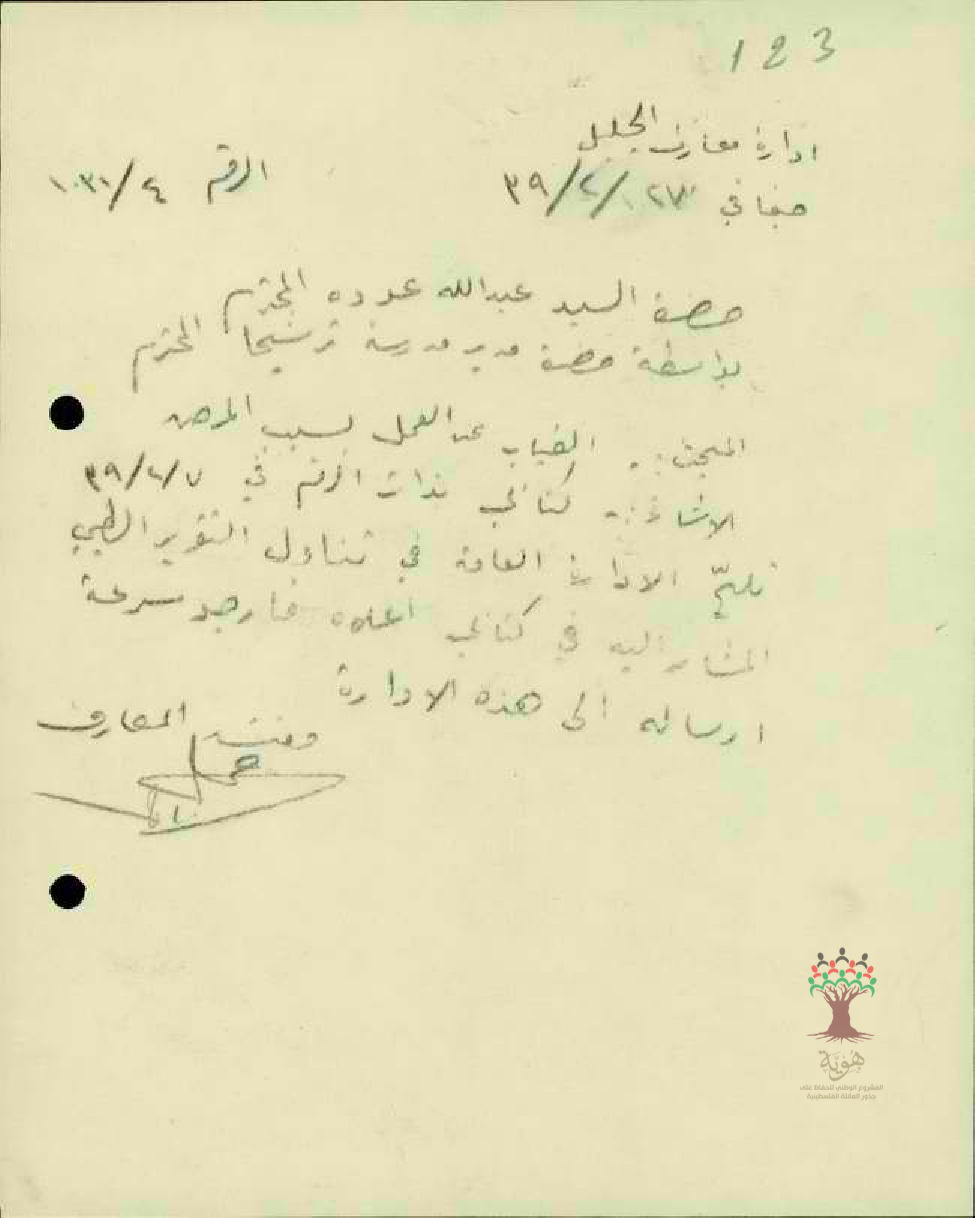 123
ادارة معارف الجليل
حيفا في ٢٧/٢/٣٩ الرقم ٤/١٠٣١
حضرة السيد عبدالله عوده المحترم
بواسطة حضرة مدير مدرسة ترشيحا المحترم
المبحث:- الغياب عن العمل بسبب المرض
الاشارة:- كتابي بذات الرقم في ٧/٢/٣٩
تلحّ الادارة العامة في تناول التقرير الطبي
المشار اليه في كتابي اعلاه فارجو سرعة
ارساله الى هذه الادارة
مفتش المعارف
هوية
المشروع الوطني للحفاظ على
جذور العائلة الفلسطينية